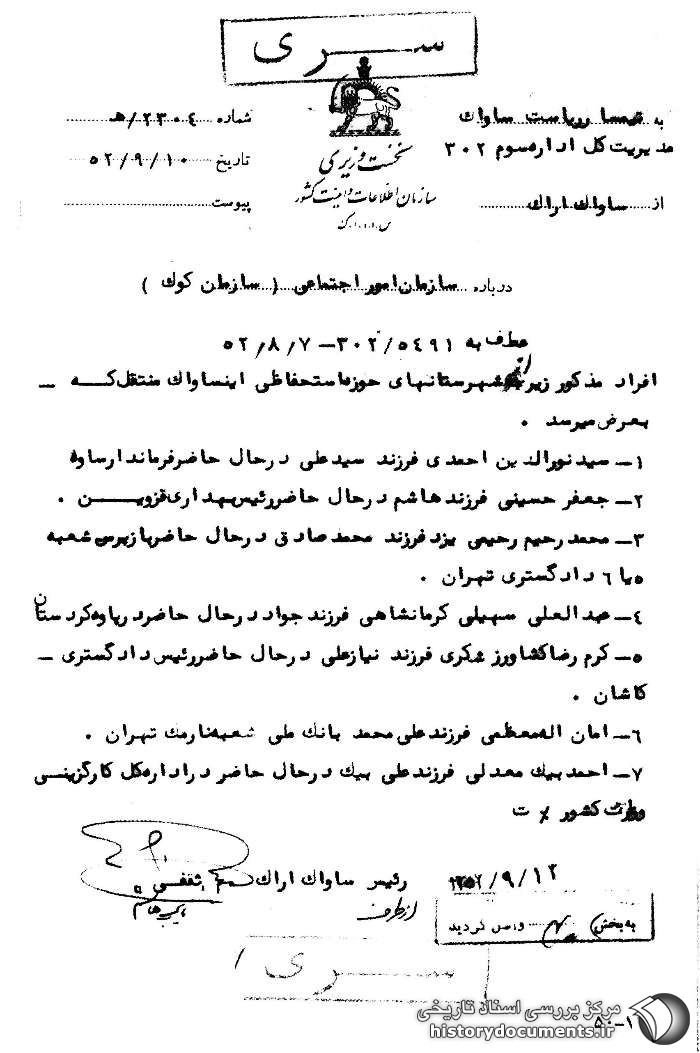 سری
به تیمسار ریاست ساواک
مدیریت کل اداره سوم ۳۰۲
از ساواک اراک
نخست وزیری
سازمان اطلاعات و امنیت کشور
س.ا.و.ا.ک
شماره ۲۳۰٤/هـ
تاریخ ۵۲/۹/۱۰
پیوست
درباره سازمان امور اجتماعی (سازمان کوک)
عطف به ۳۰۲/۵٤۹۱-۵۲/۸/۷
افراد مذکور زیر از شهرستانهای حوزه استحفاظی اینساواک منتقل که ــ
بعرض میرسد .
۱ــ سید نورالدین احمدی فرزند سیدعلی در حال حاضر فرماندار ساوه
۲ــ جعفر حسینی فرزند هاشم در حال حاضر رئیس بهداری قزوین .
۳ــ محمد رحیم رحیمی یزد فرزند محمد صادق در حال حاضر بازپرس شعبه
۵ یا ٦ دادگستری تهران .
٤ــ عبدالعلی سهیلی کرمانشاهی فرزند جواد در حال حاضر در پاوه کردستان
۵ــ کرم رضا کشاورز شکری فرزند نیازعلی در حال حاضر رئیس دادگستری ــ
کاشان .
٦ــ امان اله معظمی فرزند علی محمد بانک ملی شعبه نارمک تهران .
۷ــ احمد بیک معدلی فرزند علی بیک در حال حاضر در اداره کل کارگزینی
وزارت کشور ٪ ت
رئیس ساواک اراک ثقفی
از طرف
۱۳۵۲/۹/۱۲
به بخش واصل گردید
سری
۵۰-۱
مرکز بررسی اسناد تاریخی
historydocuments.ir